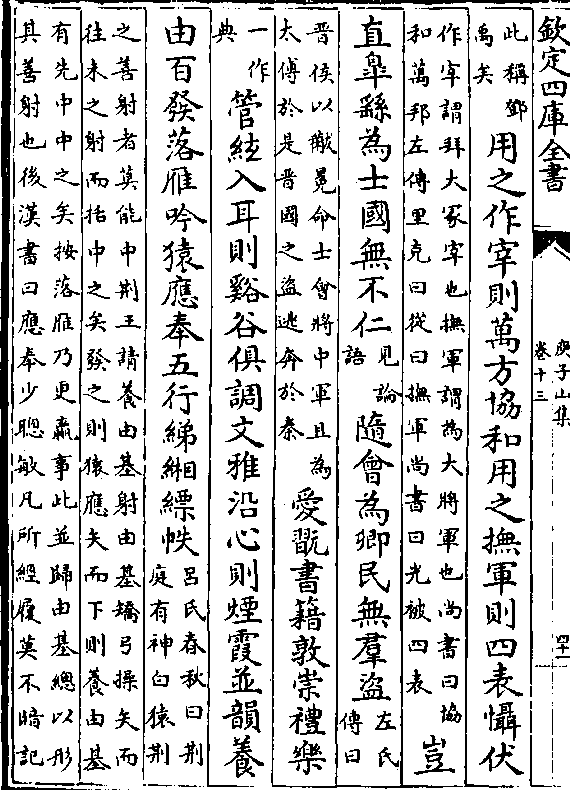 欽定四庫全書
庾子山集
卷十三
四十一
此稱鄧
禹矣
用之作宰則萬方協和用之撫軍則四表懾伏
作宰謂拜大冢宰也撫軍謂為大將軍也尚書曰協
和萬邦左傳里克曰從曰撫軍尚書曰光被四表
豈
直臯繇為士國無不仁
見論
語
隨會為卿民無羣盜
左氏
傳曰
晉侯以黻冕命士會將中軍且為
太傅於是晉國之盜逃奔於秦
愛翫書籍敦崇禮樂
一作
典
管絃入耳則谿谷俱調文雅沿心則煙霞並韻養
由百發落雁吟猿應奉五行綈緗縹帙
呂氏春秋曰荆
庭有神白猿荆
之善射者莫能中荆王請養由基射由基矯弓操矢而
往未之射而括中之矣發之則猿應矢而下則養由基
有先中中之矣按落雁乃更羸事此並歸由基總以形
其善射也後漢書曰應奉少聰敏凡所經履莫不暗記